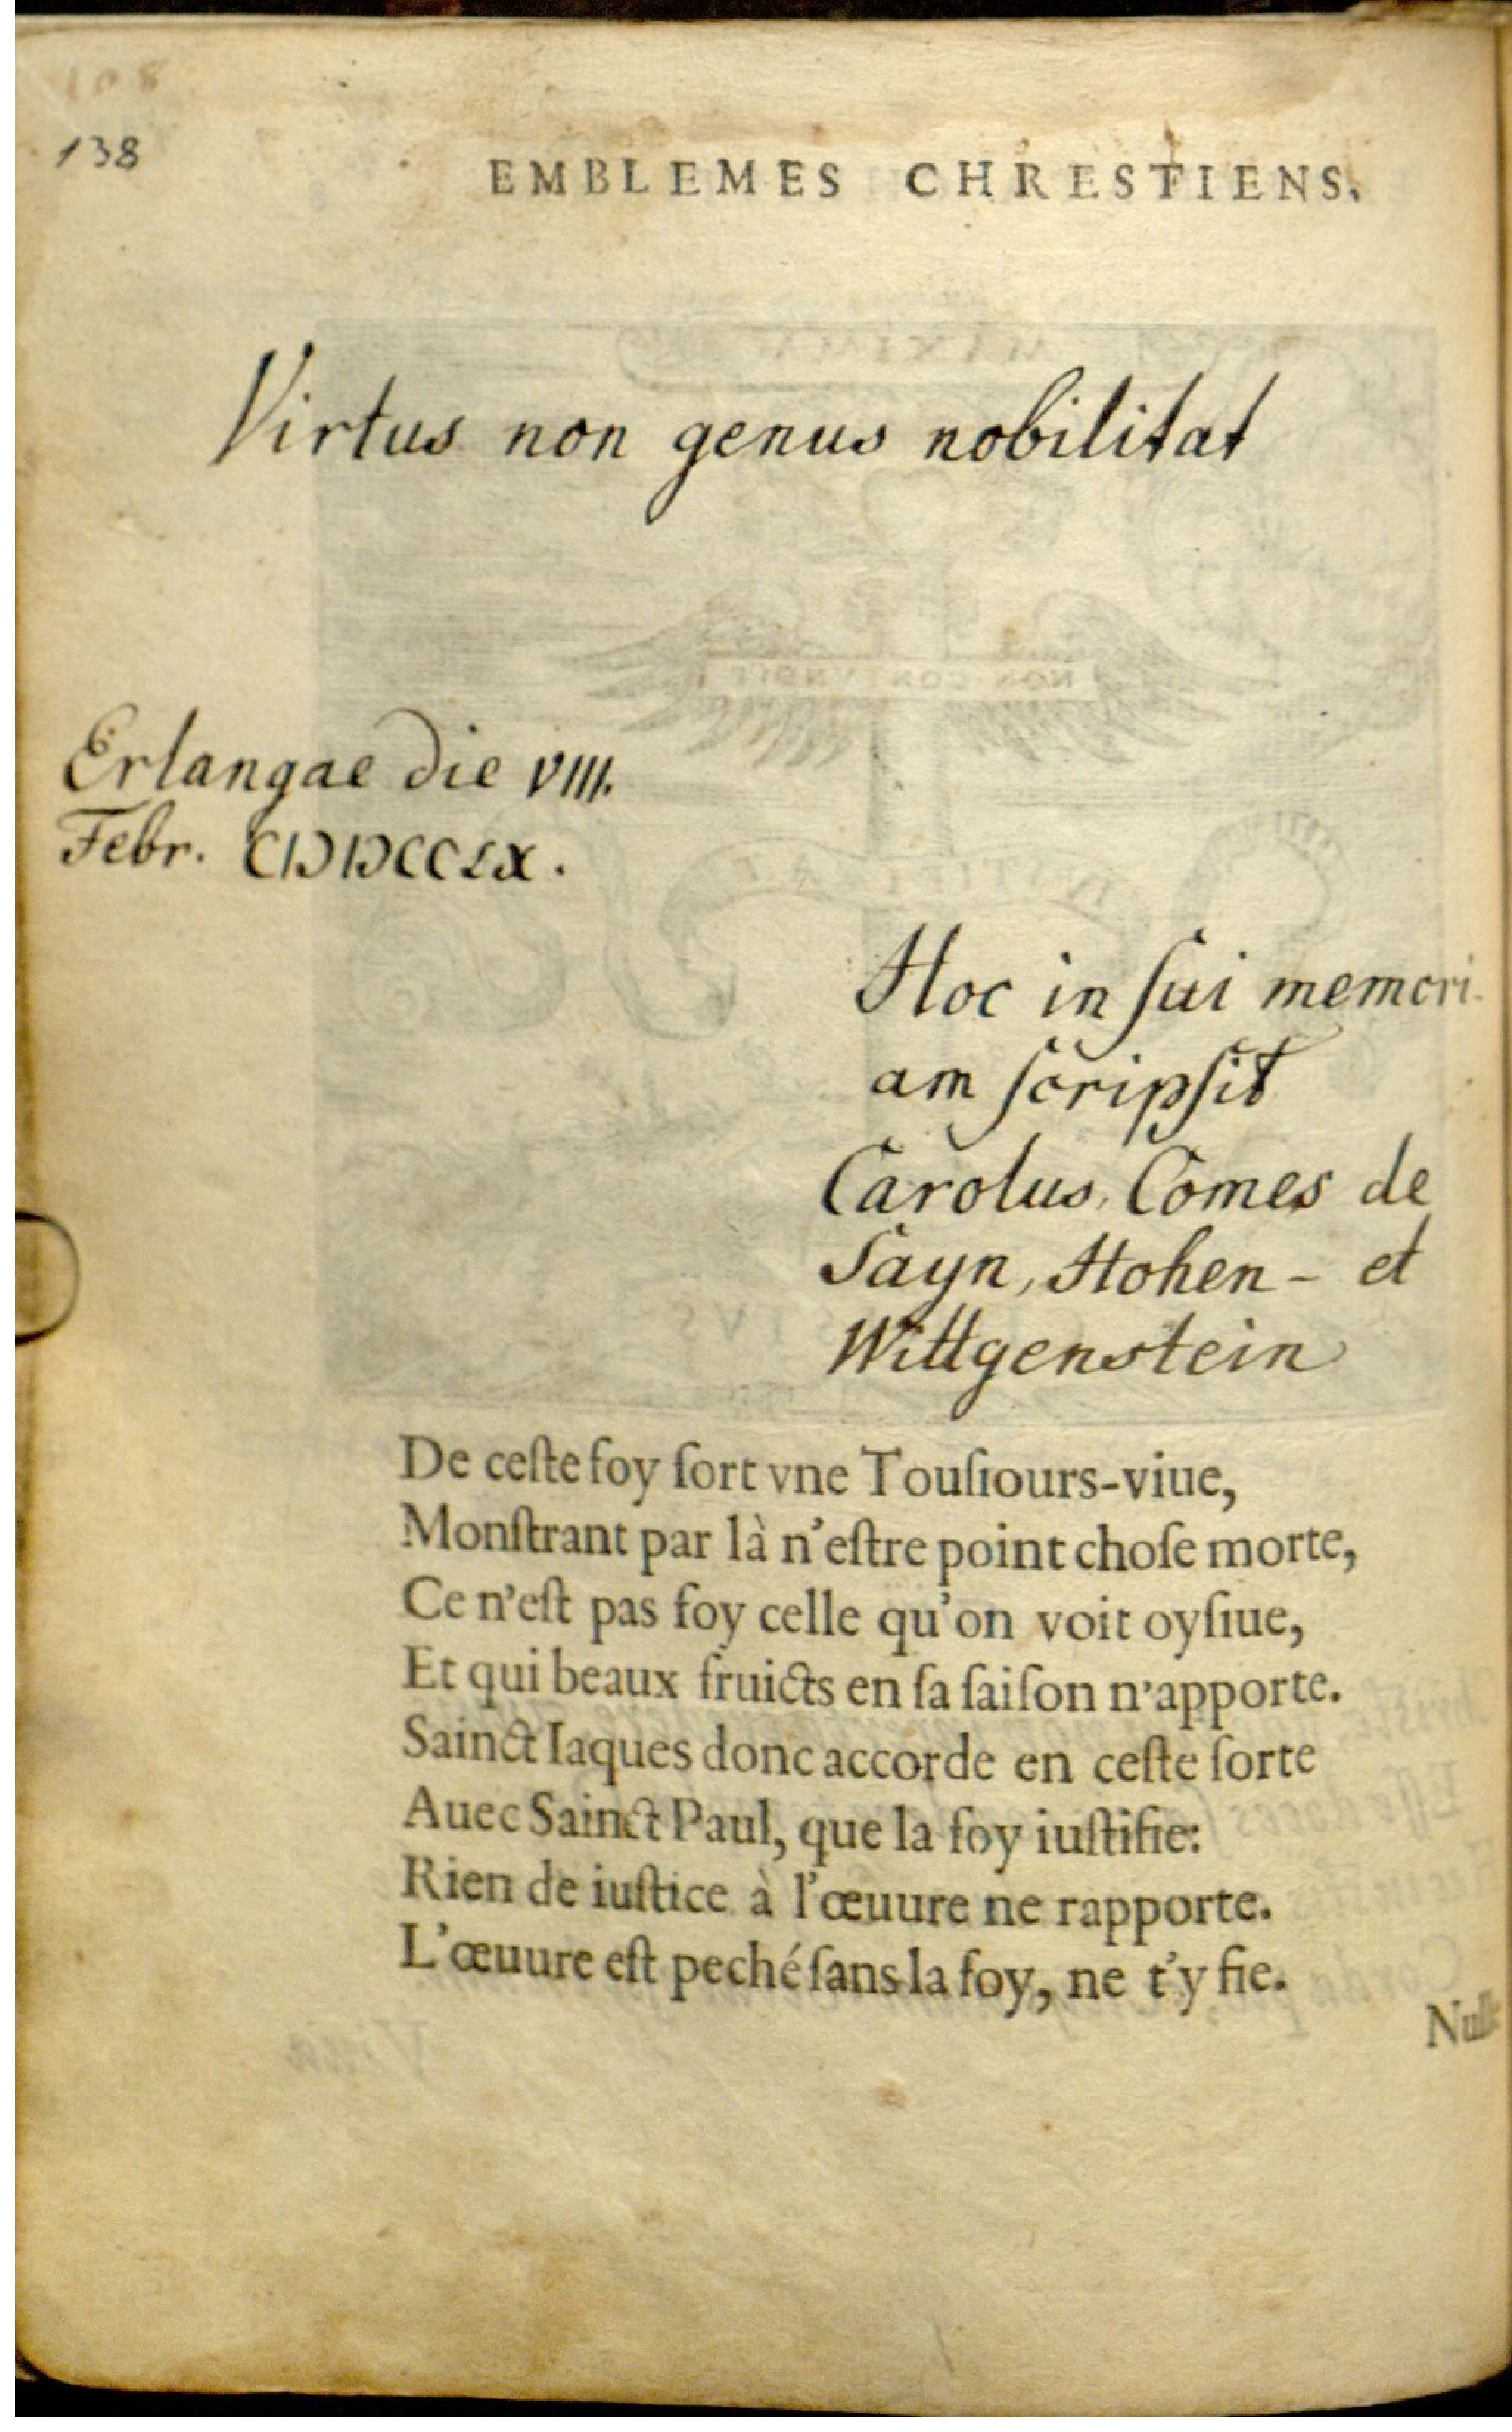 138
EMBLEMES CHRESTIENS.
Virtus non genus nobilitat
Erlangae die VIII.
Febr. CIƆIƆCCLX.
Hoc in ſui memori-
am ſcripſit
Carolus Comes de
Sayn, Hohen- et
Wittgenstein
De ceſte foy ſort vne Touſiours-viue,
Monſtrant par là n'eſtre point choſe morte,
Ce n'eſt pas foy celle qu'on voit oyſiue,
Et qui beaux fruicts en ſa ſaiſon n'apporte.
Sainct Iaques donc accorde en ceſte ſorte
Auec Sainct Paul, que la foy iuſtifie:
Rien de iuſtice à l'œuure ne rapporte.
L'œuure eſt peché ſans la foy, ne t'y fie.